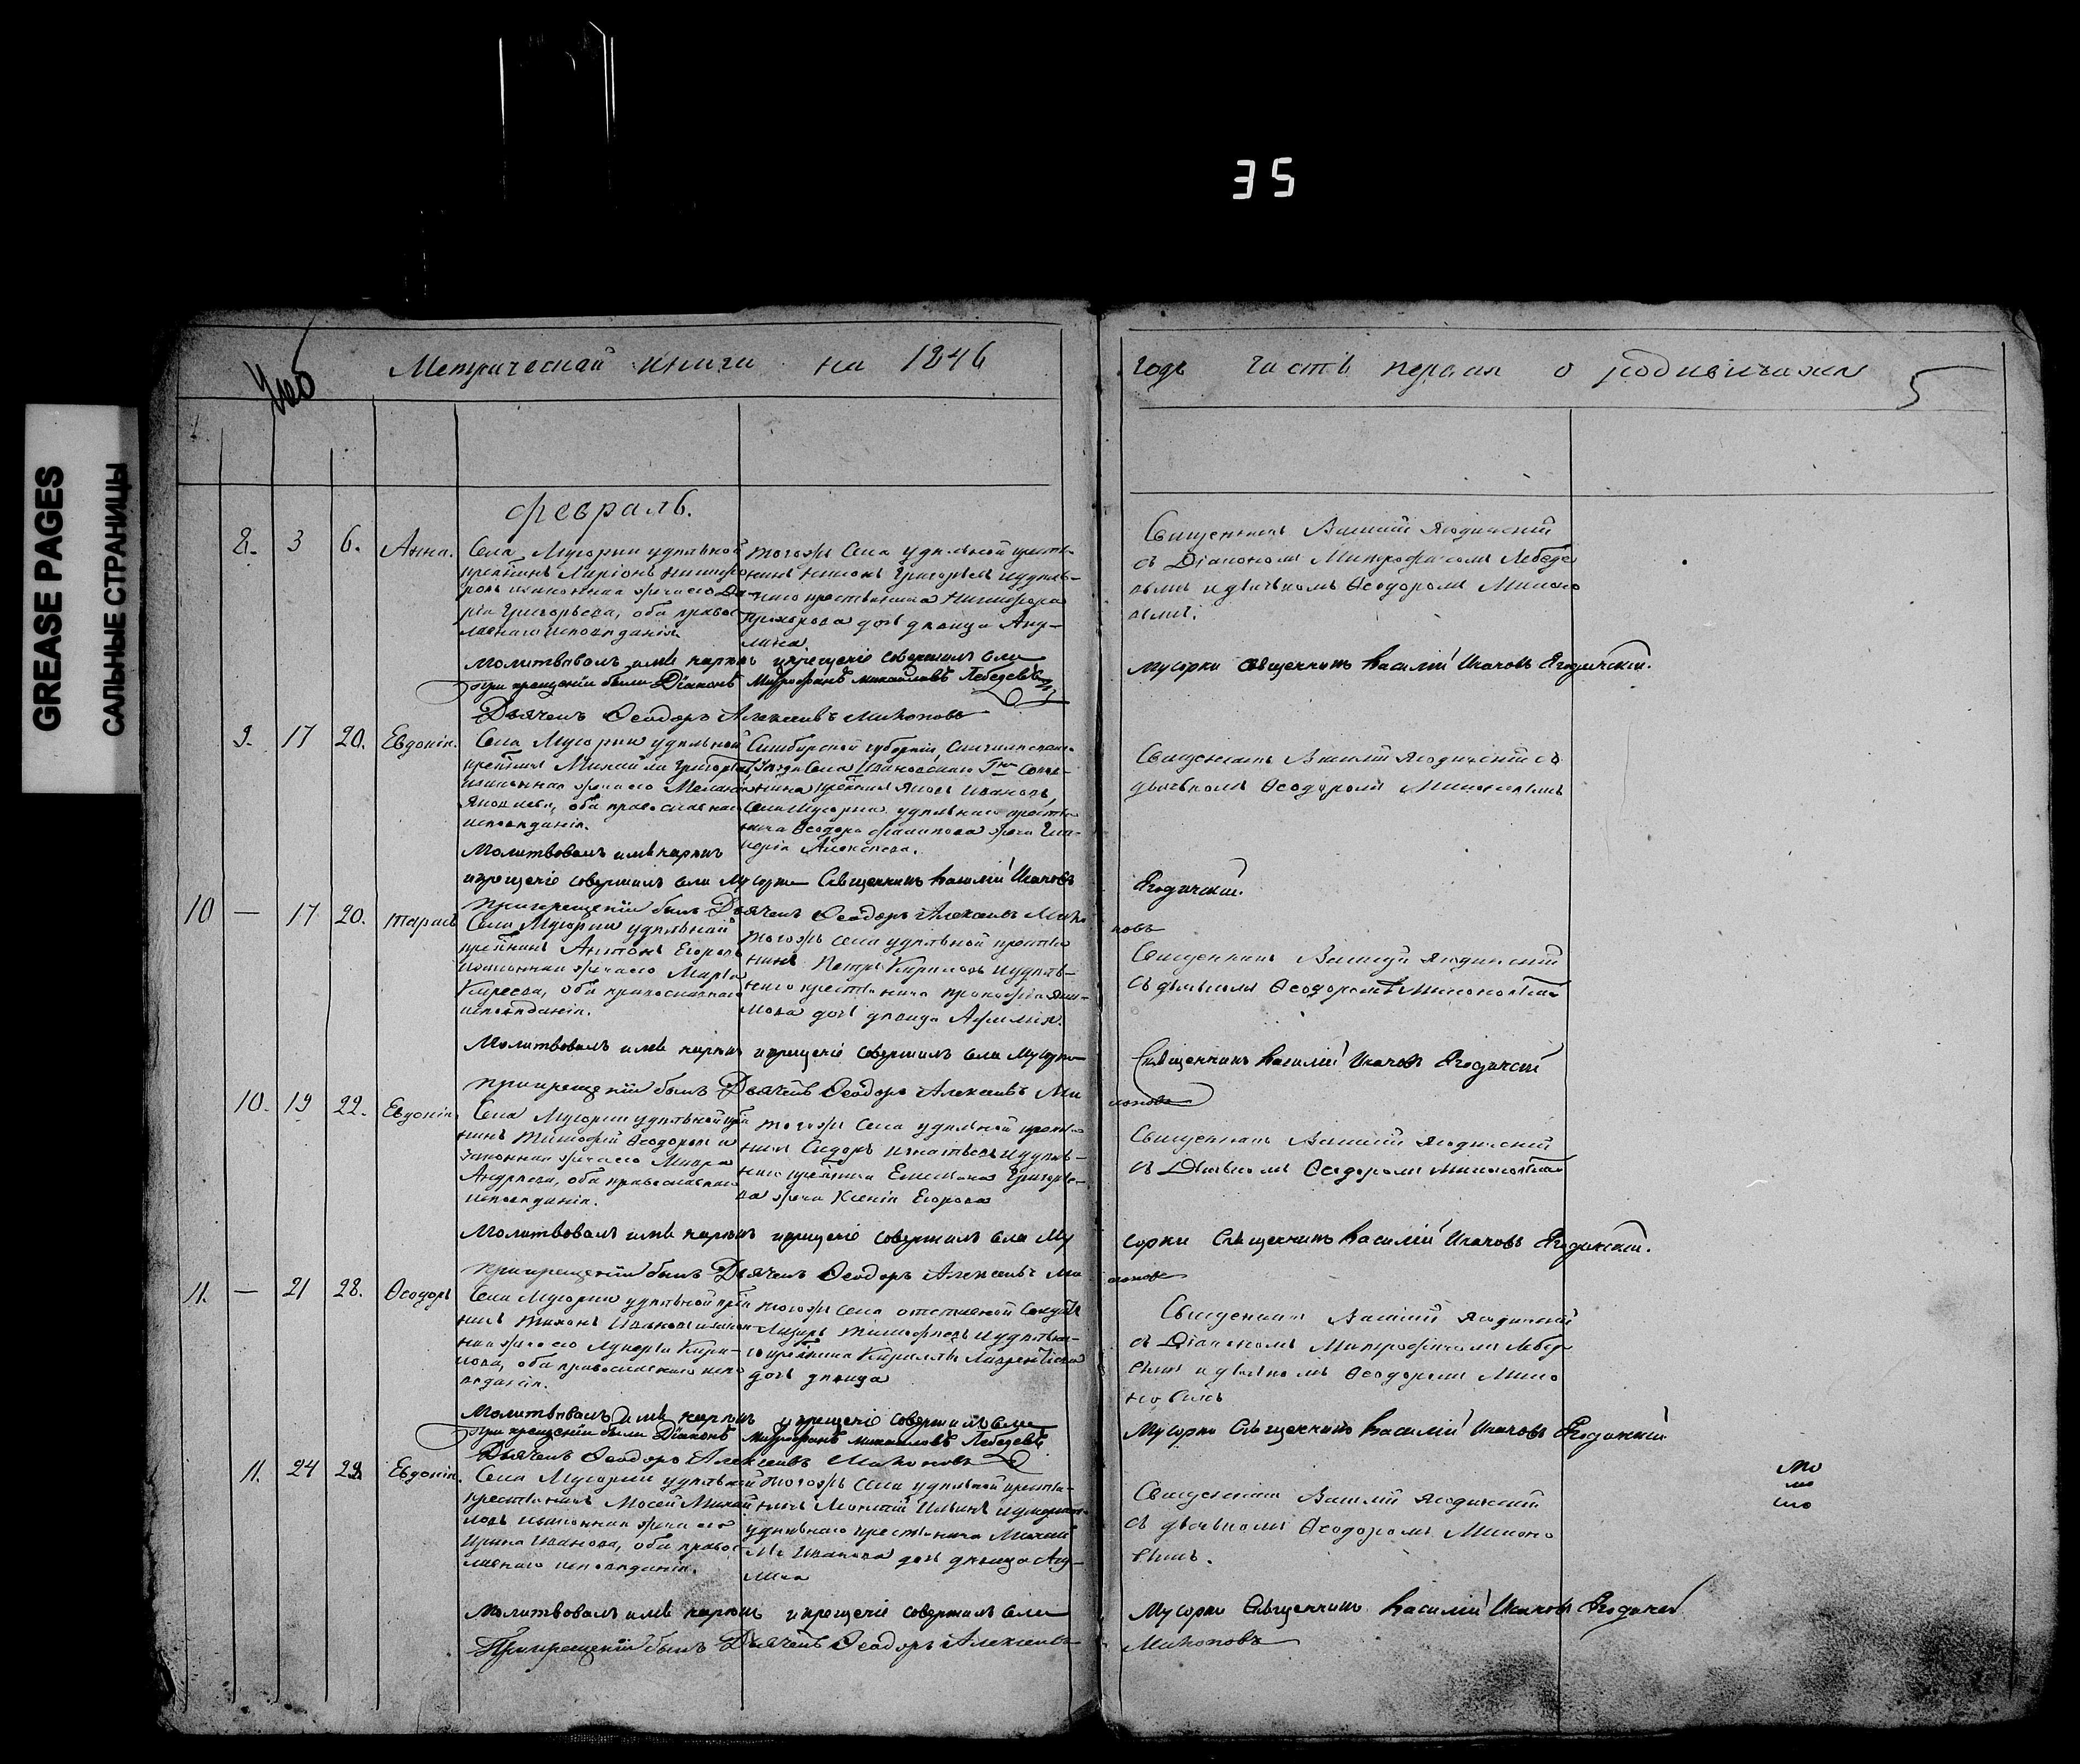 35
GREASE PAGES
САЛЬНЫЕ СТРАНИЦЫ
Метрической книги на 1846
годъ часть первая о родившихся
5
Февраль.
8. 3 6. Анна.
Села Мусорки удѣльной
рова и законная жена его Да
рія Григорьева, оба право
славнаго исповѣданія.
тогожъ села удѣльной кресть-
нинъ Григорьевъ и удѣль-
наго крестьянина Никифора
Прохорова дочь дѣвица Аку-
лина.
Священникъ Василій Ягодинскій
съ Діакономъ Митрофаномъ Лебеде
вымъ и дьячкомъ Ѳеодоромъ Милоно
вымъ.
Молитвовалъ имя нарекъ и крещеніе совершилъ села
Мусорки священникъ Василій Исаковъ Ягодинскій.
При крещеніи были Діаконъ Митрофанъ Михайловъ Лебедевъ
Дьячекъ Ѳеодоръ Алексѣевъ Милоновъ
9. 17 20. Евдокія.
Села Мусорки удѣльной
Михайла Григорьевъ
и законная жена его
Яковлева, оба православнаго
исповѣданія.
Симбирской губерніи,
уѣзда села Ивановскаго
Яковъ Ивановъ,
села Мусорки удѣльнаго кресть
нина Ѳеодора Филипова жена
Алексѣева.
Священникъ Василій Ягодинскій съ
дьячкомъ Ѳеодоромъ Милоновымъ
Молитвовалъ имя нарекъ
и крещеніе совершилъ села Мусорки Священникъ Василій Исаковъ
Ягодинскій.
При крещеніи былъ Дьячекъ Ѳеодоръ Алексѣевъ Мило
новъ
10 — 17 20. Тарасъ
Села Мусорки удѣльной
Антонъ Егоровъ
и законная жена его Марѳа
Кирѣева, оба православнаго
исповѣданія.
тогожъ села удѣльной крестья
нинъ Петръ Кириловъ и удѣль-
наго крестьянина Прокофья Яки-
мова дочь дѣвица Афимія.
Священникъ Василій Ягодинскій
съ дьячкомъ Ѳеодоромъ Милоновымъ
Молитвовалъ имя нарекъ и крещеніе совершилъ села Мусорки
Священникъ Василій Исаковъ Ягодинскій
При крещеніи былъ Дьячекъ Ѳеодоръ Алексѣевъ Ми
лоновъ
10. 19 22. Евдокія
Села Мусорки удѣльной
нинъ Тимофей Ѳеодоровъ и
законная жена его Мавра
Андреева, оба православнаго
исповѣданія.
тогожъ села удѣльной кресть
нинъ Сидоръ Игнатьевъ и удѣль-
наго Григорье-
ва жена Ксенія Егорова
Священникъ Василій Ягодинскій
съ Дьячкомъ Ѳеодоромъ Милоновымъ
Молитвовалъ имя нарекъ и крещеніе совершилъ села Му
сорки Священникъ Василій Исаковъ Ягодинскій.
При крещеніи былъ Дьячекъ Ѳеодоръ Алексѣевъ Ми
лоновъ
11. — 21 28. Ѳеодоръ
Села Мусорки удѣльной
нинъ Тихонъ Ивановъ и закон
ная жена его Лукерья Кири-
лова, оба православнаго испо
вѣданія.
тогожъ села отставной солдатъ
Лазарь Тимофѣевъ и удѣльна-
го Лаврентьева
дочь дѣвица
Священникъ Василій Ягодинскій
съ Діакономъ Митрофаномъ Лебед
евымъ и дьячкомъ Ѳеодоромъ Мило
новымъ
Молитвовалъ имя нарекъ и крещеніе совершилъ села
Мусорки Священникъ Василій Исаковъ Ягодинскій
При крещеніи были Діаконъ Митрофанъ Михайловъ Лебедевъ
Дьячекъ Ѳеодоръ Алексѣевъ Милоновъ
11. 24 29. Евдокія.
Села Мусорки удѣльной
крестьянинъ Мосей Михай
ловъ и законная жена его
Ирина Иванова, оба право
славнаго исповѣданія.
тогожъ села удѣльной кресть-
нинъ Ильинъ
удѣльнаго крестьянина Михай
лы Иванова дочь дѣвица Аку-
лина
Священникъ Василій Ягодинскій
съ дьячкомъ Ѳеодоромъ Милоно
вымъ.
Молитвовалъ имя нарекъ и крещеніе совершилъ села
Мусорки Священникъ Василій Исаковъ Ягодинскій
При крещеніи былъ Дьячекъ Ѳеодоръ Алексѣевъ
Милоновъ